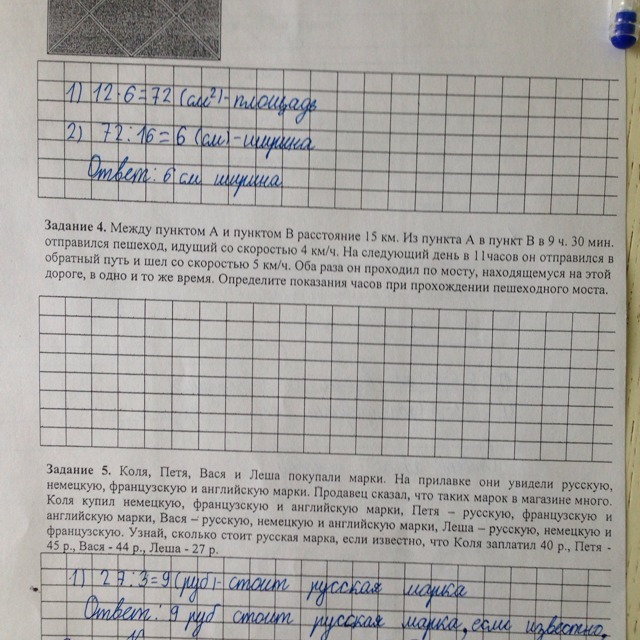 1) 12·6=72 (см²)-площадь
2) 72:16=6 (см)-ширина
Ответ: 6 см ширина
Задание 4. Между пунктом А и пунктом В расстояние 15 км. Из пункта А в пункт В в 9 ч. 30 мин.
отправился пешеход, идущий со скоростью 4 км/ч. На следующий день в 11часов он отправился в
обратный путь и шел со скоростью 5 км/ч. Оба раза он проходил по мосту, находящемуся на этой
дороге, в одно и то же время. Определите показания часов при прохождении пешеходного моста.
Задание 5. Коля, Петя, Вася и Леша покупали марки. На прилавке они увидели русскую,
немецкую, французскую и английскую марки. Продавец сказал, что таких марок в магазине много.
Коля купил немецкую, французскую и английскую марки, Петя – русскую, французскую и
английскую марки, Вася – русскую, немецкую и английскую марки, Леша – русскую, немецкую и
французскую. Узнай, сколько стоит русская марка, если известно, что Коля заплатил 40 р., Петя -
45 р., Вася - 44 р., Леша - 27 р.
1) 27:3=9(руб)-стоит русская марка
Ответ: 9 руб стоит русская марка, если известно,